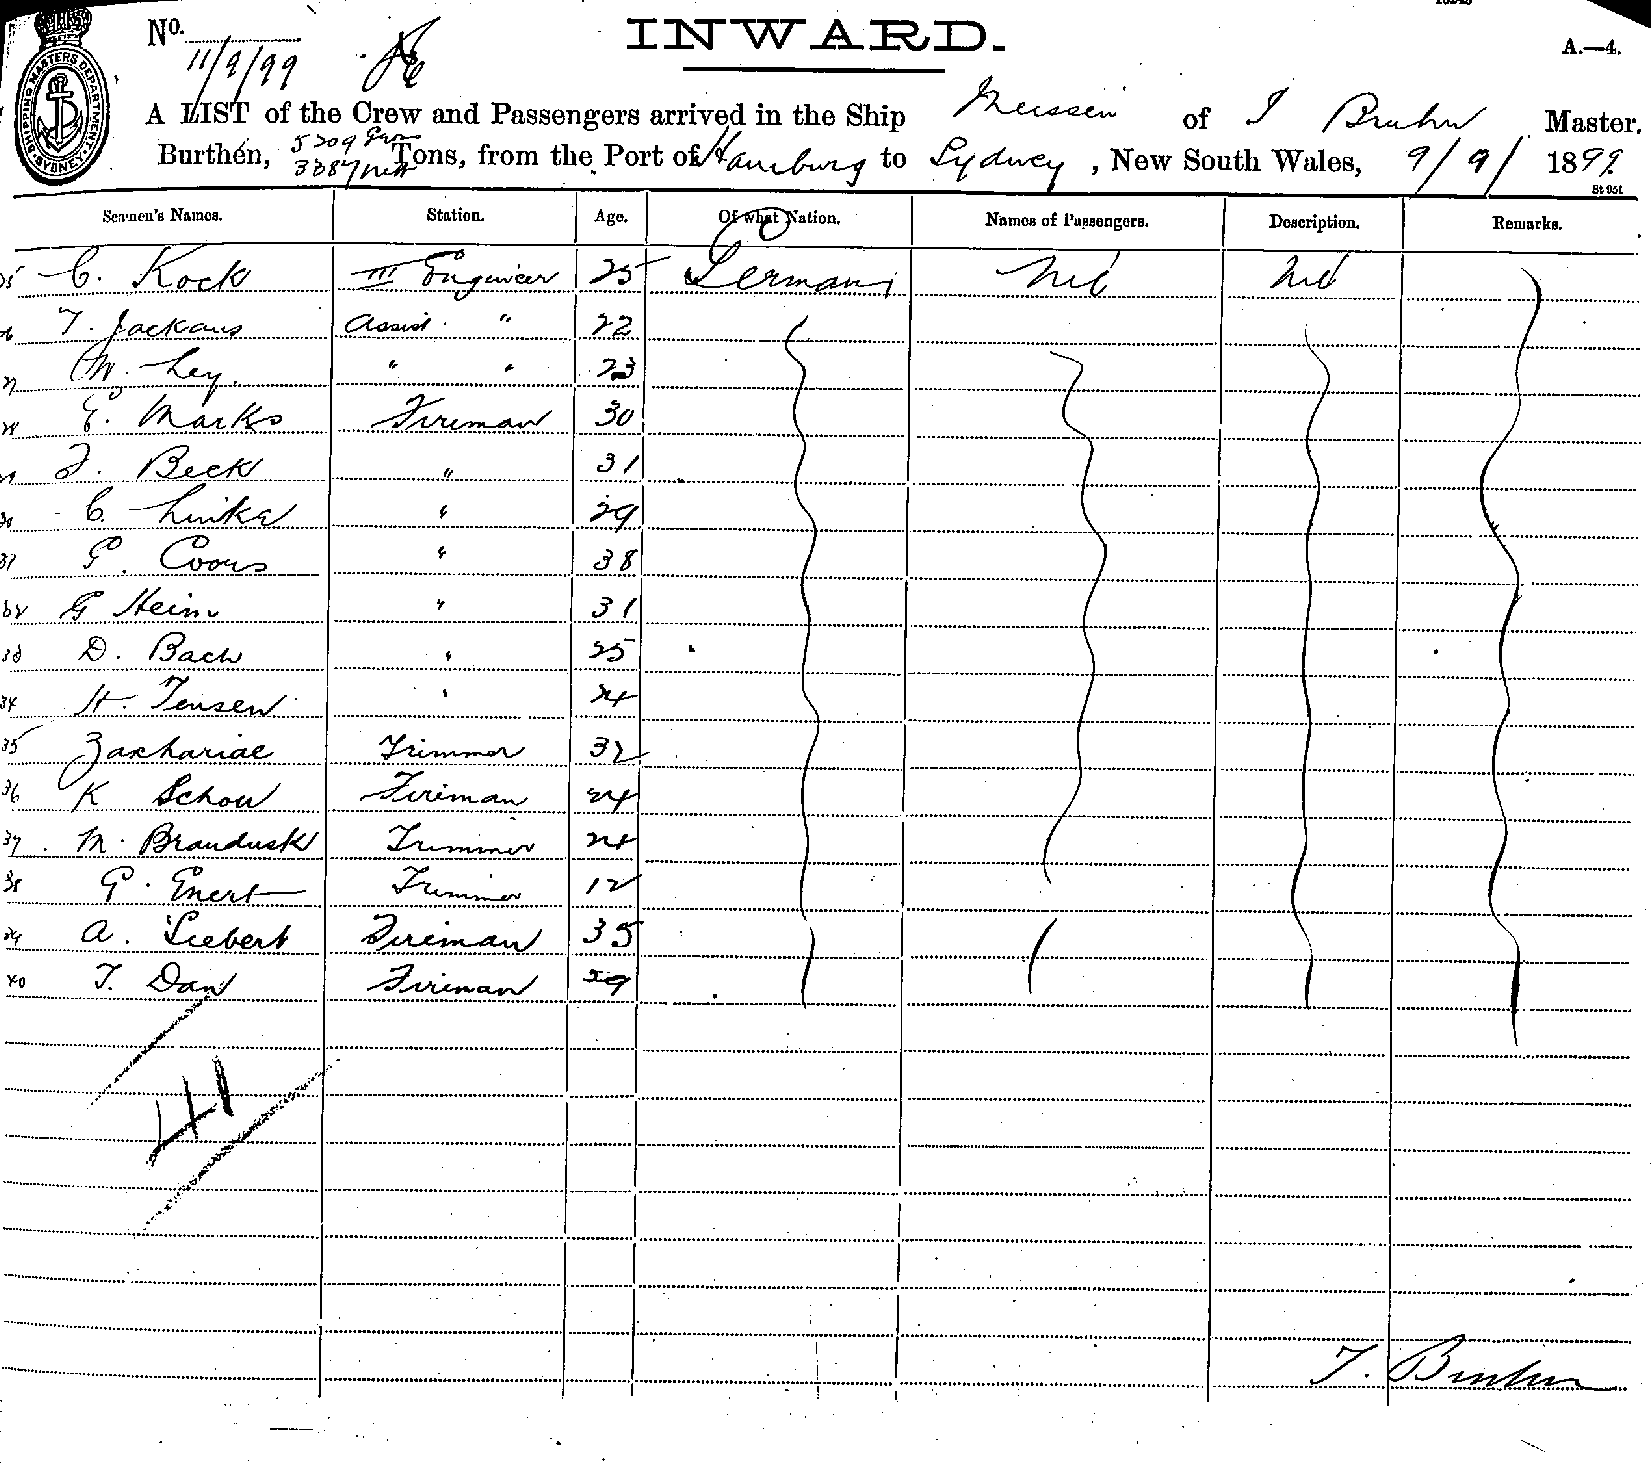 No. 11/9/99
INWARD.
A.—4.
SHIPPING MASTERS DEPARTMENT SYDNEY
A LIST of the Crew and Passengers arrived in the Ship Meissen of J Bruhn Master.
Burthen, 5209 Gross 3387 nett Tons, from the Port of Hamburg to Sydney, New South Wales, 9/9/ 1899.
St 95t
Seamen's Names. Station. Age. Of what Nation. Names of Passengers. Description. Remarks.
25 C. Kock III Engineer 25 German Nil Nil
26 T. Jackaus Assist. " 22
27 W. Ley. " " 23
28 E. Marks Fireman 30
29 J. Beck " 31
30 C. Linke " 29
31 G. Coors " 38
32 G Heim " 31
33 D. Bach " 25
34 H. Jensen " 24
35 Zachariae Trimmer 32
36 K Schou Fireman 24
37 M. Brandusk Trimmer 24
38 G. Enert Trimmer 12
39 A. Siebert Fireman 35
40 T. Dan Fireman 29
41
J. Bruhn